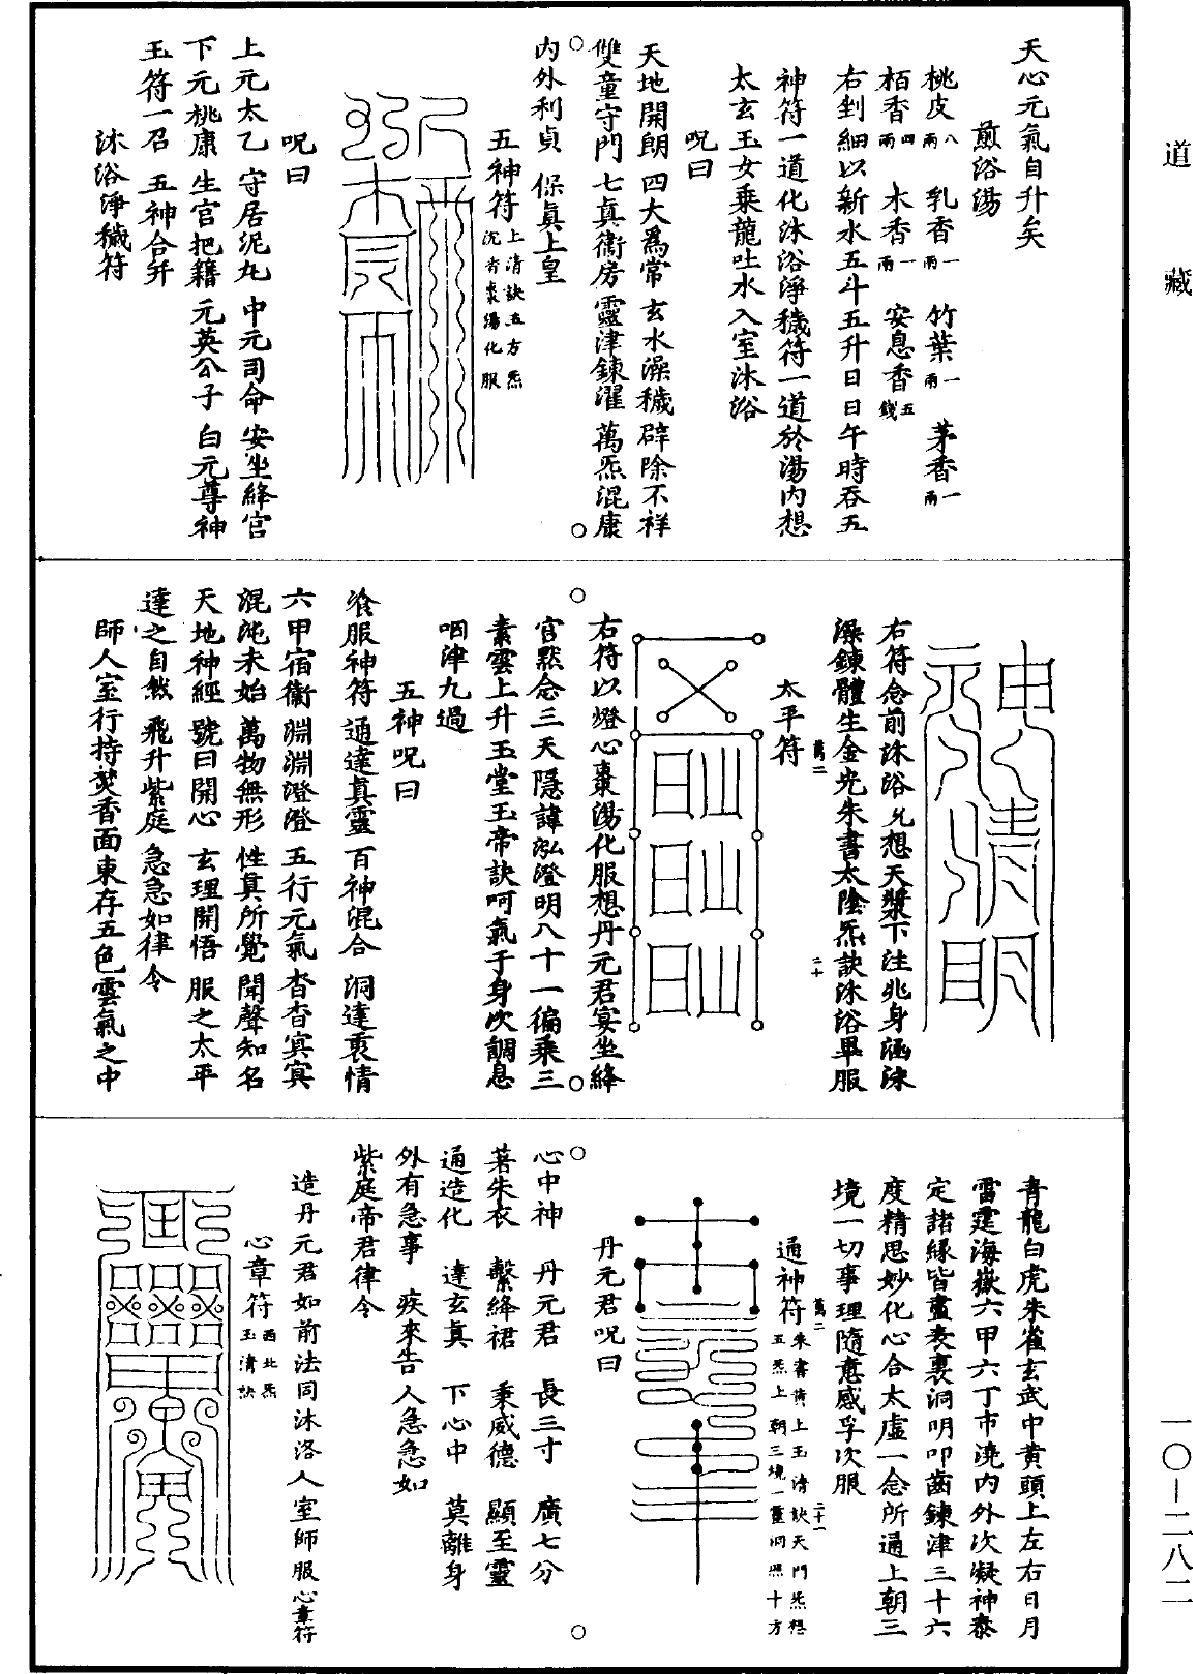 道藏
天心元氣自升矣
煎浴湯
桃皮八兩 乳香一兩 竹葉一兩 茅香一兩
栢香四兩 木香一兩 安息香五錢
右剉細以新水五斗五升日日午時吞五
神符一道化沐浴淨穢符一道於湯內想
太玄玉女乘龍吐水入室沐浴
呪曰
天地開朗 四大爲常 玄水澡穢 辟除不祥
雙童守門 七眞衞房 靈津鍊濯 萬炁混康
內外利貞 保眞上皇
五神符上清訣五方炁沉香棗湯化服
呪曰
上元太乙 守居泥丸 中元司命 安坐絳宮
下元桃康 生宮把籍 元英公子 白元尊神
玉符一召 五神合并
沐浴淨穢符
右符念前沐浴呪想天漿下注兆身涵沐
澡鍊體生金光朱書太陰炁訣沐浴畢服
萬二 二十
太平符
右符以燈心棗湯化服想丹元君宴坐絳
宮默念三天隱諱泓澄明八十一徧乘三
素雲上升玉堂王帝訣呵氣于身次調息
咽津九過
五神呪曰
飡服神符 通達眞靈 百神混合 洞達衷情
六甲宿衞 淵淵澄澄 五行元氣 杳杳冥冥
混沌未始 萬物無形 性眞所覺 聞聲知名
天地神經 號曰開心 玄理開悟 服之太平
達之自然 飛升紫庭 急急如律令
師入室行持焚香面東存五色雲氣之中
青龍白虎朱雀玄武中黃頭上左右日月
雷霆海嶽六甲六丁帀澆內外次凝神泰
定諸緣皆盡表裏洞明叩齒鍊津三十六
度精思妙化心合太虛一念所通上朝三
境一切事理隨意感孚次服
萬二 二十一
通神符朱書黃上玉清訣天門炁想五炁上朝三境一靈洞照十方
丹元君呪曰
心中神 丹元君 長三寸 廣七分
著朱衣 繫絳裙 秉威德 顯至靈
通造化 達玄眞 下心中 莫離身
外有急事 疾來告人急急如
紫庭帝君律令
造丹元君如前法同沐浴入室師服心章符
心章符西北炁玉清訣
一〇—二八二